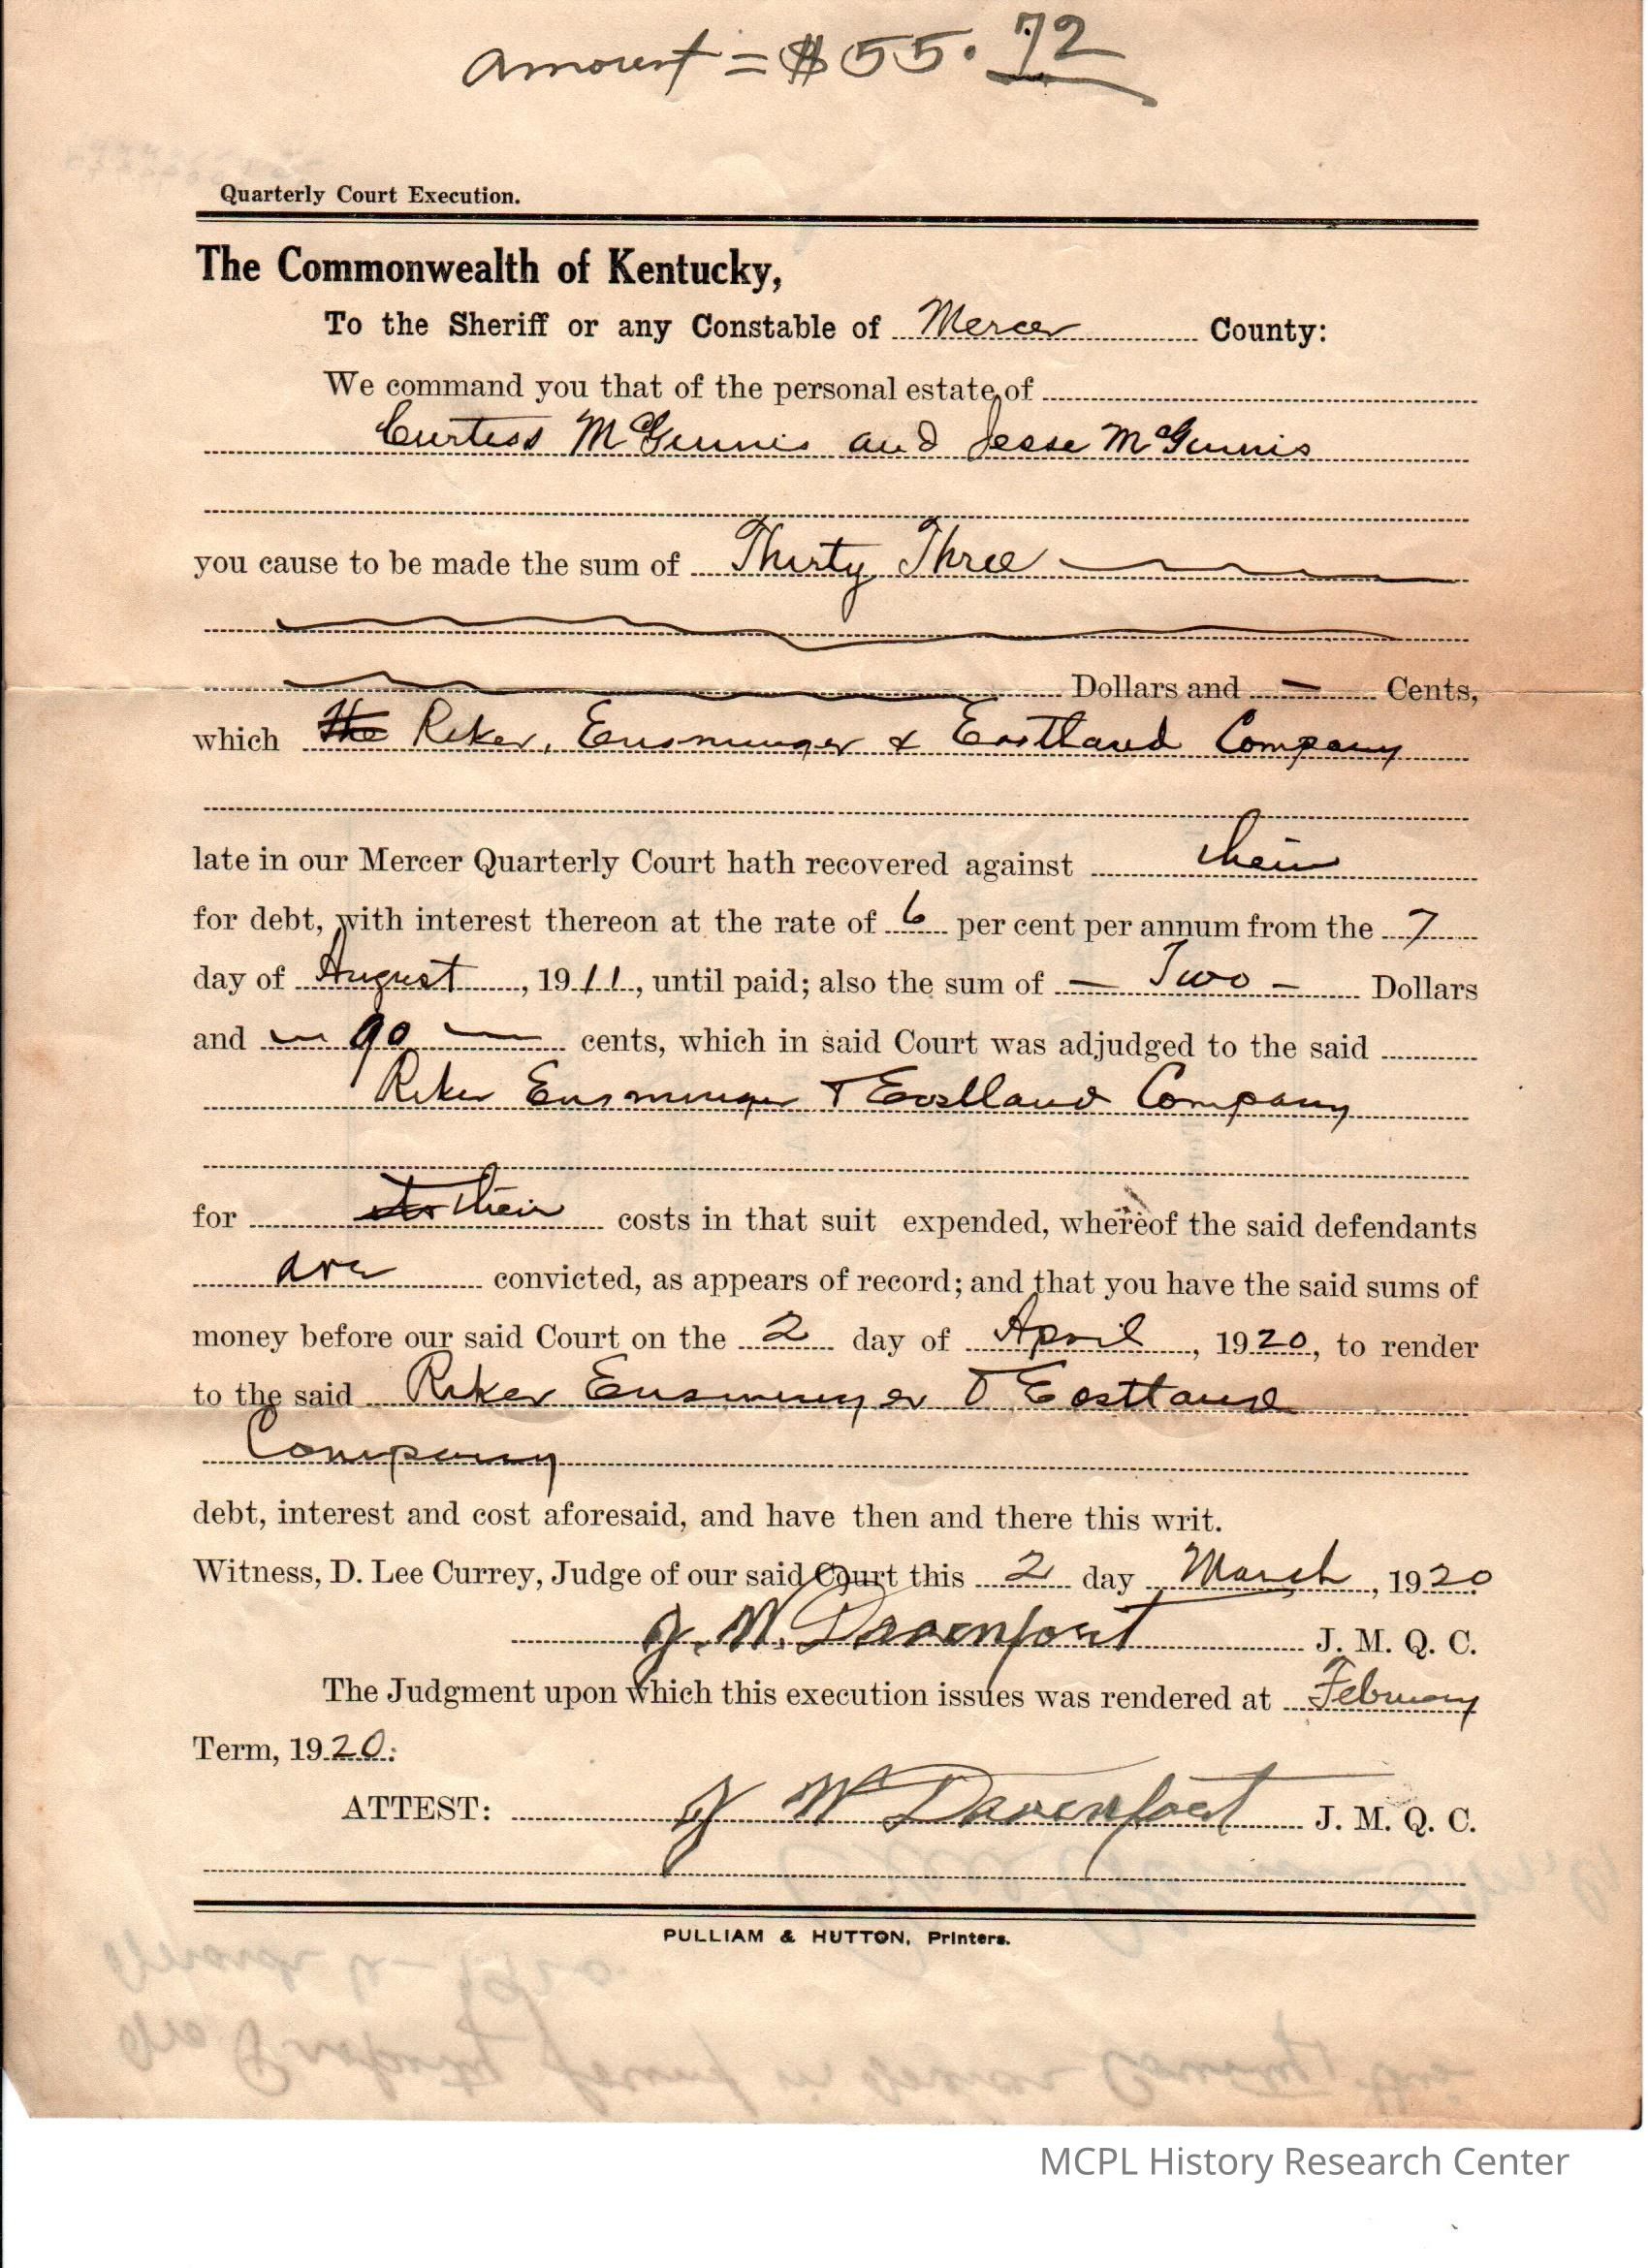 amount = $55.72
Quarterly Court Execution.
The Commonwealth of Kentucky,
To the Sheriff or any Constable of Mercer County:
We command you that of the personal estate of
Curtiss McGinnis and Jesse McGinnis
you cause to be made the sum of Thirty Three
Dollars and — Cents,
which the Riker, Ensminger & Eastland Company
late in our Mercer Quarterly Court hath recovered against their
for debt, with interest thereon at the rate of 6 per cent per annum from the 7
day of August, 1911, until paid; also the sum of — Two — Dollars
and — 90 — cents, which in said Court was adjudged to the said
Riker Ensminger & Eastland Company
for its their costs in that suit expended, whereof the said defendants
are convicted, as appears of record; and that you have the said sums of
money before our said Court on the 2 day of April, 1920, to render
to the said Riker Ensminger & Eastland
Company
debt, interest and cost aforesaid, and have then and there this writ.
Witness, D. Lee Currey, Judge of our said Court this 2 day March, 1920
J. W. Davenport J. M. Q. C.
The Judgment upon which this execution issues was rendered at February
Term, 1920.
ATTEST: J W Davenport J. M. Q. C.
PULLIAM & HUTTON, Printers.
MCPL History Research Center